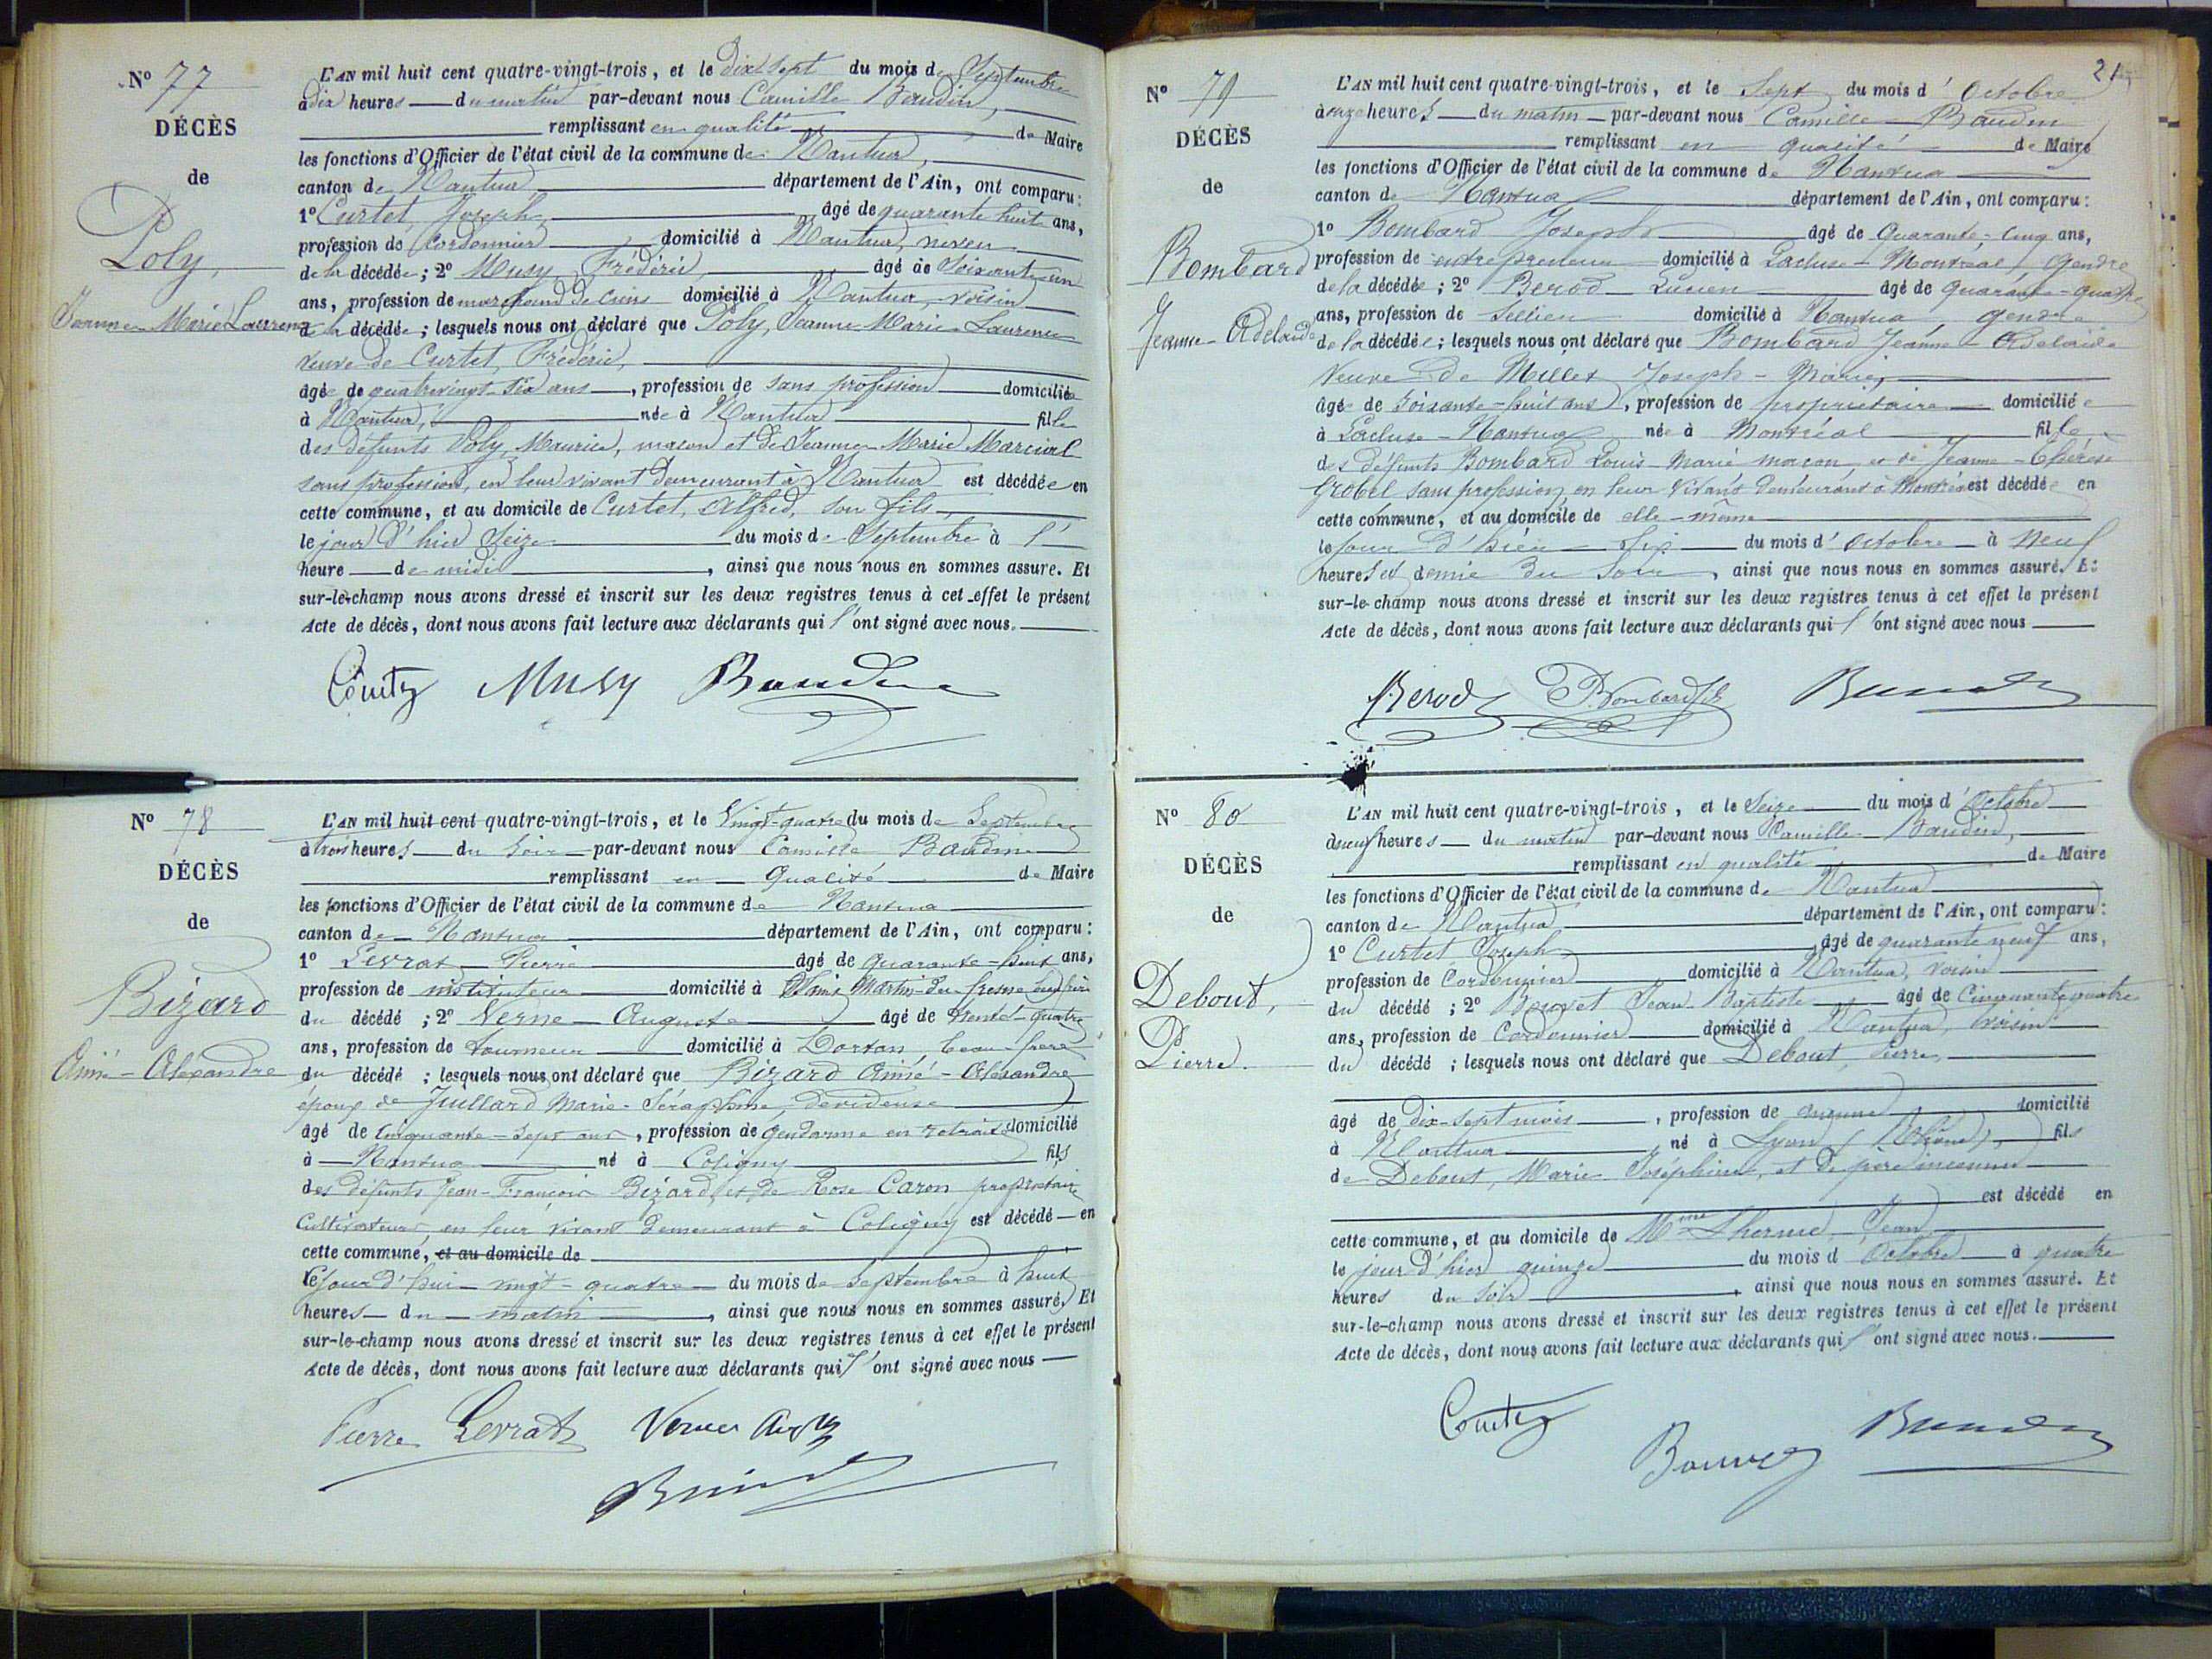 N° 77
DÉCÈS
de
Poly,
Jeanne Marie Laurence
L'AN mil huit cent quatre-vingt-trois, et le dix sept du mois de Septembre
à dix heures du matin par-devant nous Camille Baudin,
remplissant en qualité de Maire
les fonctions d'Officier de l'état civil de la commune de Nantua,
canton de Nantua département de l'Ain, ont comparu:
1° Curtet, Joseph, âgé de quarante huit ans,
profession de Cordonnier domicilié à Nantua, neveu
de la décédée; 2° Musy, Frédéric, âgé de soixante un
ans, profession de marchand de crins domicilié à Nantua, voisin
de la décédée; lesquels nous ont déclaré que Poly, Jeanne Marie Laurence
veuve de Curtet, Frédéric,
âgée de quatrevingt-six ans, profession de sans profession domiciliée
à Nantua, née à Nantua fille
des défunts Poly, Maurice, maçon et de Jeanne Marie Marcial
sans profession, en leur vivant demeurant à Nantua est décédée en
cette commune, et au domicile de Curtet, Alfred, son fils,
le jour d'hier seize du mois de Septembre à l'
heure de midi, ainsi que nous nous en sommes assuré. Et
sur-le-champ nous avons dressé et inscrit sur les deux registres tenus à cet effet le présent
Acte de décès, dont nous avons fait lecture aux déclarants qui l'ont signé avec nous.
Musy Baudin
N° 78
DÉCÈS
de
Bizard
Aimé-Alexandre
L'AN mil huit cent quatre-vingt-trois, et le Vingt-quatre du mois de Septembre
à trois heures du soir par-devant nous Camille Baudin
remplissant en Qualité de Maire
les fonctions d'Officier de l'état civil de la commune de Nantua
canton de Nantua département de l'Ain, ont comparu:
1° Levrat Pierre âgé de quarante-huit ans,
profession de instituteur domicilié à Martin-du-fresne
du décédé; 2° Verne Auguste âgé de trente-quatre
ans, profession de tourneur domicilié à Dortan beau-frère
du décédé; lesquels nous ont déclaré que Bizard Aimé-Alexandre
époux de Juillard Marie-Séraphine, devideuse
âgé de cinquante-sept ans, profession de gendarme en retraite domicilié
à Nantua né à Coligny fils
des défunts Jean-François Bizard, et de Rose Caron propriétaire
cultivateurs, en leur vivant demeurant à Coligny est décédé en
cette commune, et au domicile de
le jour d'hui vingt-quatre du mois de septembre à huit
heures du matin, ainsi que nous nous en sommes assuré. Et
sur-le-champ nous avons dressé et inscrit sur les deux registres tenus à cet effet le présent
Acte de décès, dont nous avons fait lecture aux déclarants qui l'ont signé avec nous
Pierre Levrat
Baudin
21
N° 79
DÉCÈS
de
Bombard
Jeanne-Adelaide
L'AN mil huit cent quatre-vingt-trois, et le Sept du mois d'Octobre
à onze heures du matin par-devant nous Camille Baudin
remplissant en qualité de Maire
les fonctions d'Officier de l'état civil de la commune de Nantua
canton de Nantua département de l'Ain, ont comparu:
1° Bombard Joseph âgé de Quarante-cinq ans,
profession de entrepreneur domicilié à Lacluse-Montréal, gendre
de la décédée; 2° Berod Lucien âgé de quarante-quatre
ans, profession de sellier domicilié à Nantua gendre
de la décédée; lesquels nous ont déclaré que Bombard Jeanne-Adelaide
Veuve de Millet Joseph-Marie,
âgée de soixante-huit ans, profession de propriétaire domiciliée
à Lacluse-Nantua née à Montréal fille
des défunts Bombard Louis-Marie maçon, et de Jeanne-Thérèse
Grobel sans profession, en leur vivant demeurant à Montréal est décédée en
cette commune, et au domicile de elle-même
le jour d'hier six du mois d'octobre à neuf
heures et demie du soir, ainsi que nous nous en sommes assuré. Et
sur-le-champ nous avons dressé et inscrit sur les deux registres tenus à cet effet le présent
Acte de décès, dont nous avons fait lecture aux déclarants qui l'ont signé avec nous
Berod Bombard Baudin
N° 80
DÉCÈS
de
Debout,
Pierre.
L'AN mil huit cent quatre-vingt-trois, et le Seize du mois d'Octobre
à neuf heures du matin par-devant nous Camille Baudin,
remplissant en qualité de Maire
les fonctions d'Officier de l'état civil de la commune de Nantua
canton de Nantua département de l'Ain, ont comparu:
1° Curtet, Joseph, âgé de quarante neuf ans,
profession de Cordonnier domicilié à Nantua, voisin
du décédé; 2° Bouvet Jean-Baptiste âgé de cinquante quatre
ans, profession de Cordonnier domicilié à Nantua, voisin
du décédé; lesquels nous ont déclaré que Debout, Pierre,
âgé de dix-sept mois, profession de aucune domicilié
à Nantua né à Lyon (Rhône), fils
de Debout, Marie Joséphine, et de père inconnu
est décédé en
cette commune, et au domicile de Mme Jean
le jour d'hier quinze du mois d'Octobre à quatre
heures du soir, ainsi que nous nous en sommes assuré. Et
sur-le-champ nous avons dressé et inscrit sur les deux registres tenus à cet effet le présent
Acte de décès, dont nous avons fait lecture aux déclarants qui l'ont signé avec nous.
Bouvet Baudin